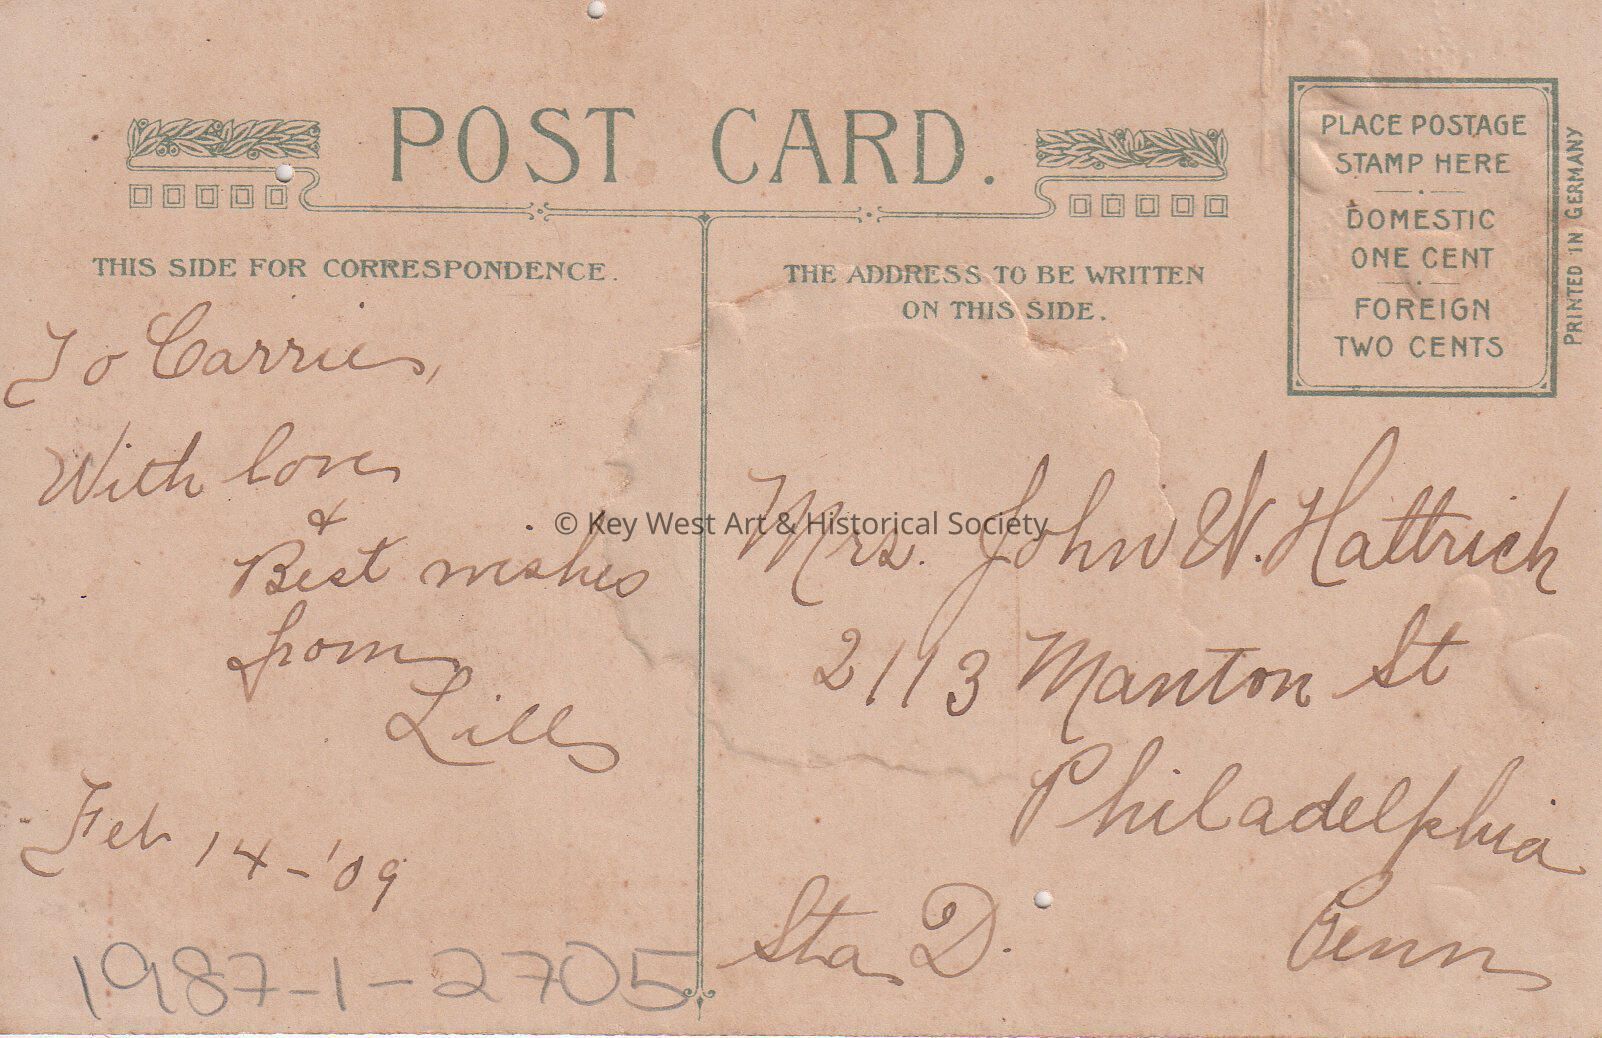 POST CARD.
THIS SIDE FOR CORRESPONDENCE.
To Carrie,
With love
&
Best wishes
from
Lill
Feb 14-'09
1987-1-2705
THE ADDRESS TO BE WRITTEN
ON THIS SIDE.
PLACE POSTAGE
STAMP HERE
DOMESTIC
ONE CENT
FOREIGN
TWO CENTS
PRINTED IN GERMANY
© Key West Art & Historical Society
Mrs. John W. Hattrich
2113 Manton St
Philadelphia
Penn
Sta D.